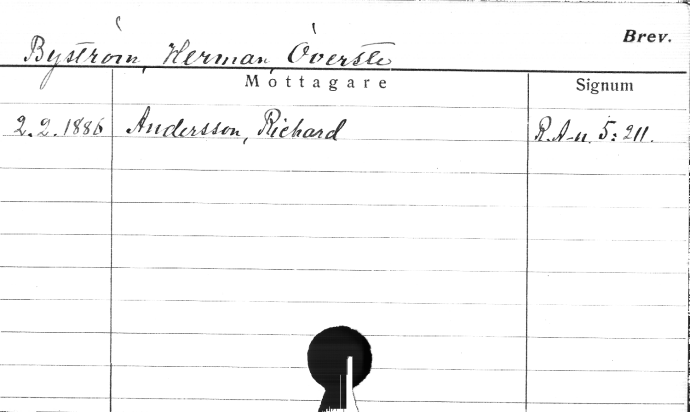 Brev.
Byström, Herman, Överste
Mottagare Signum
2.2.1886 Andersson, Richard R.A-n. 5:211.